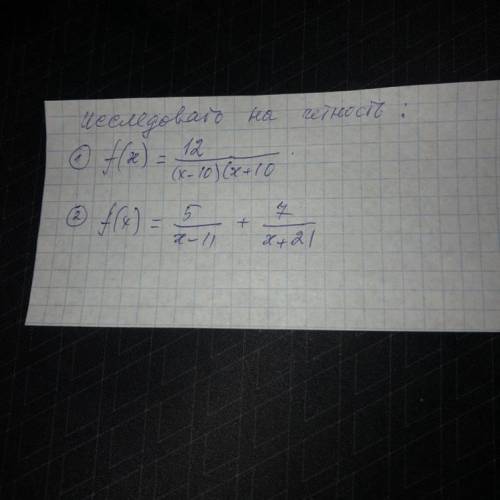 Исследовать на четность:
① f(x) = 12/(x-10)(x+10
② f(x) = 5/x-11 + 7/x+21